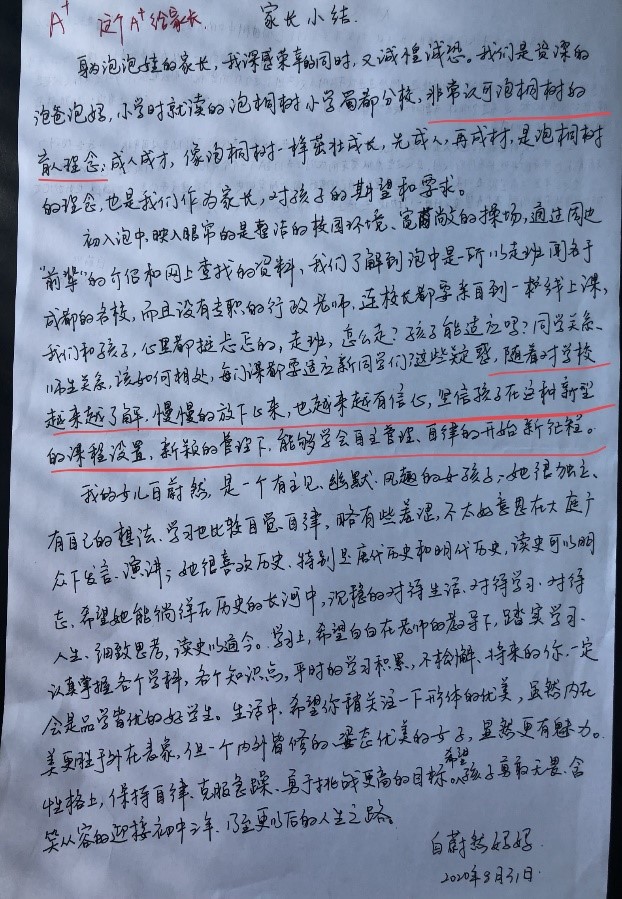 A+ 这个A+给家长. 家长小结.
身为泡泡娃的家长，我深感荣幸的同时，又诚惶诚恐。我们是资深的
泡爸泡妈，小学时就读的泡桐树小学蜀都分校，非常认可泡桐树的
育人理念；成人成才，像泡桐树一样茁壮成长，先成人，再成材，是泡桐树
的理念，也是我们作为家长，对孩子的期望和要求。
初入泡中，映入眼帘的是整洁的校园环境、宽敞的操场，通过周边
“前辈”的介绍和网上查找的资料，我们了解到泡中是一所以走班闻名于
成都的名校，而且没有专职的行政老师，连校长都要亲自到一线上课，
我们和孩子，心里都挺忐忑的，走班，怎么走？孩子能适应吗？同学关系、
师生关系，该如何相处，每门课都要适应新同学们？这些疑惑，随着对学校
越来越了解，慢慢的放下心来，也越来越有信心，坚信孩子在这种新型
的课程设置，新颖的管理下，能够学会自主管理、自律的开始新征程。
我的女儿白蔚然，是一个有主见、幽默、风趣的女孩子，她很独立、
有自己的想法、学习也比较自觉、自律，略有些羞涩，不太好意思在大庭广
众下发言、演讲；她很喜欢历史、特别是唐代历史和明代历史，读史可以明
志、希望她能徜徉在历史的长河中，沉稳的对待生活、对待学习、对待
人生、细致思考，读史以通今。学习上，希望白白在老师的教导下，踏实学习、
认真掌握各个学科，各个知识点，平时的学习积累，不松懈、将来的你一定
会是品学皆优的好学生。生活中，希望你稍关注一下形体的优美，虽然内在
美更胜于外在表象，但一个内外皆修的、姿态优美的女子，显然更有魅力。
性格上，保持自律、克服急躁、勇于挑战更高的目标。希望孩子勇敢无畏、含
笑从容的迎接初中三年、乃至更以后的人生之路。
白蔚然妈妈
2020年8月31日.